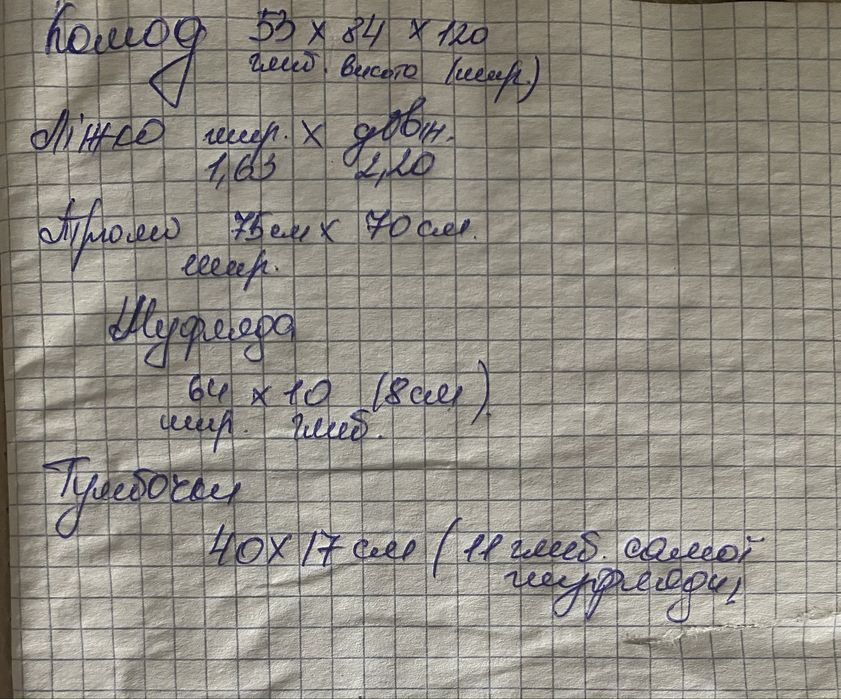 Комод 53 х 84 х 120
глиб. висота (шир.)
Ліжко шир. х довж.
1,63 2,20
Трюмо 75см х 70см.
шир.
Шуфляда
64 х 10 (8см)
шир. глиб.
Тумбочки
40х17 см (11 глиб. самої
шуфляди,